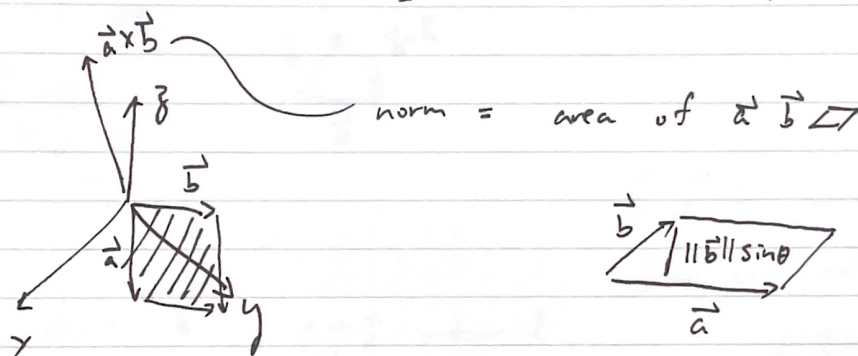 a⃗ x b⃗
z
norm = area of a⃗ b⃗ ▱
b⃗
a⃗
y
x
b⃗
||b⃗|| sinθ
a⃗